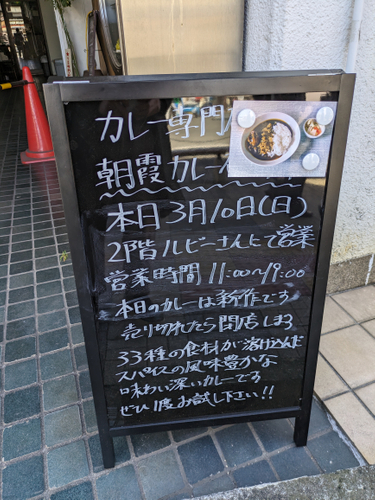 カレー専門
朝霞カレー
本日3月10日(日)
2階ルビーさんにて営業
営業時間11:00~19:00
本日のカレーは新作です
売り切れたら閉店します
33種の食材が溶け込んだ
スパイスの風味豊かな
味わい深いカレーです
ぜひ1度お試し下さい!!